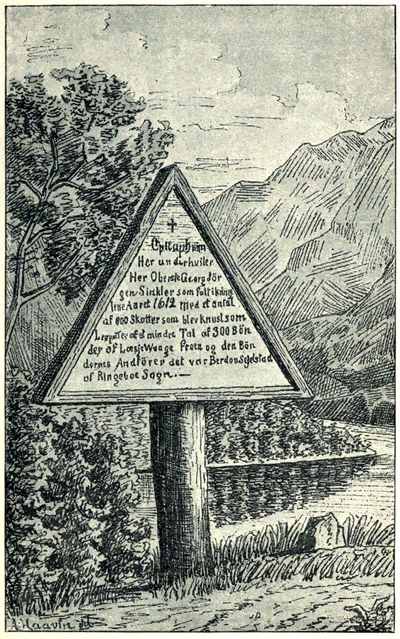 Her underhviler
Her Oberste Georg Jör
gen Sinkler som falt i Kring
lene Aaret 1612 med et antal
af 900 Skotter som blev Knust som
Leerpotter af et mindre Tal af 300 Bön
der af Lessje Waage Froen og den Bön
dernes Anförer det var Berdon Sejelstad
af Ringeboe Sogn. —